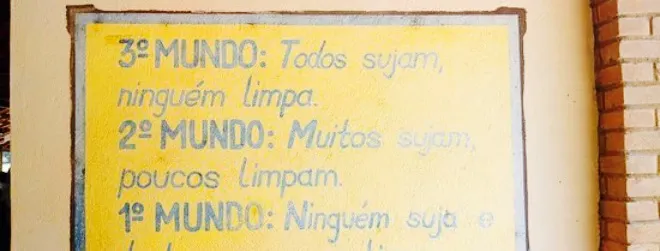 3º MUNDO: Todos sujam,
ninguém limpa.
2º MUNDO: Muitos sujam,
poucos limpam.
1º MUNDO: Ninguém suja e